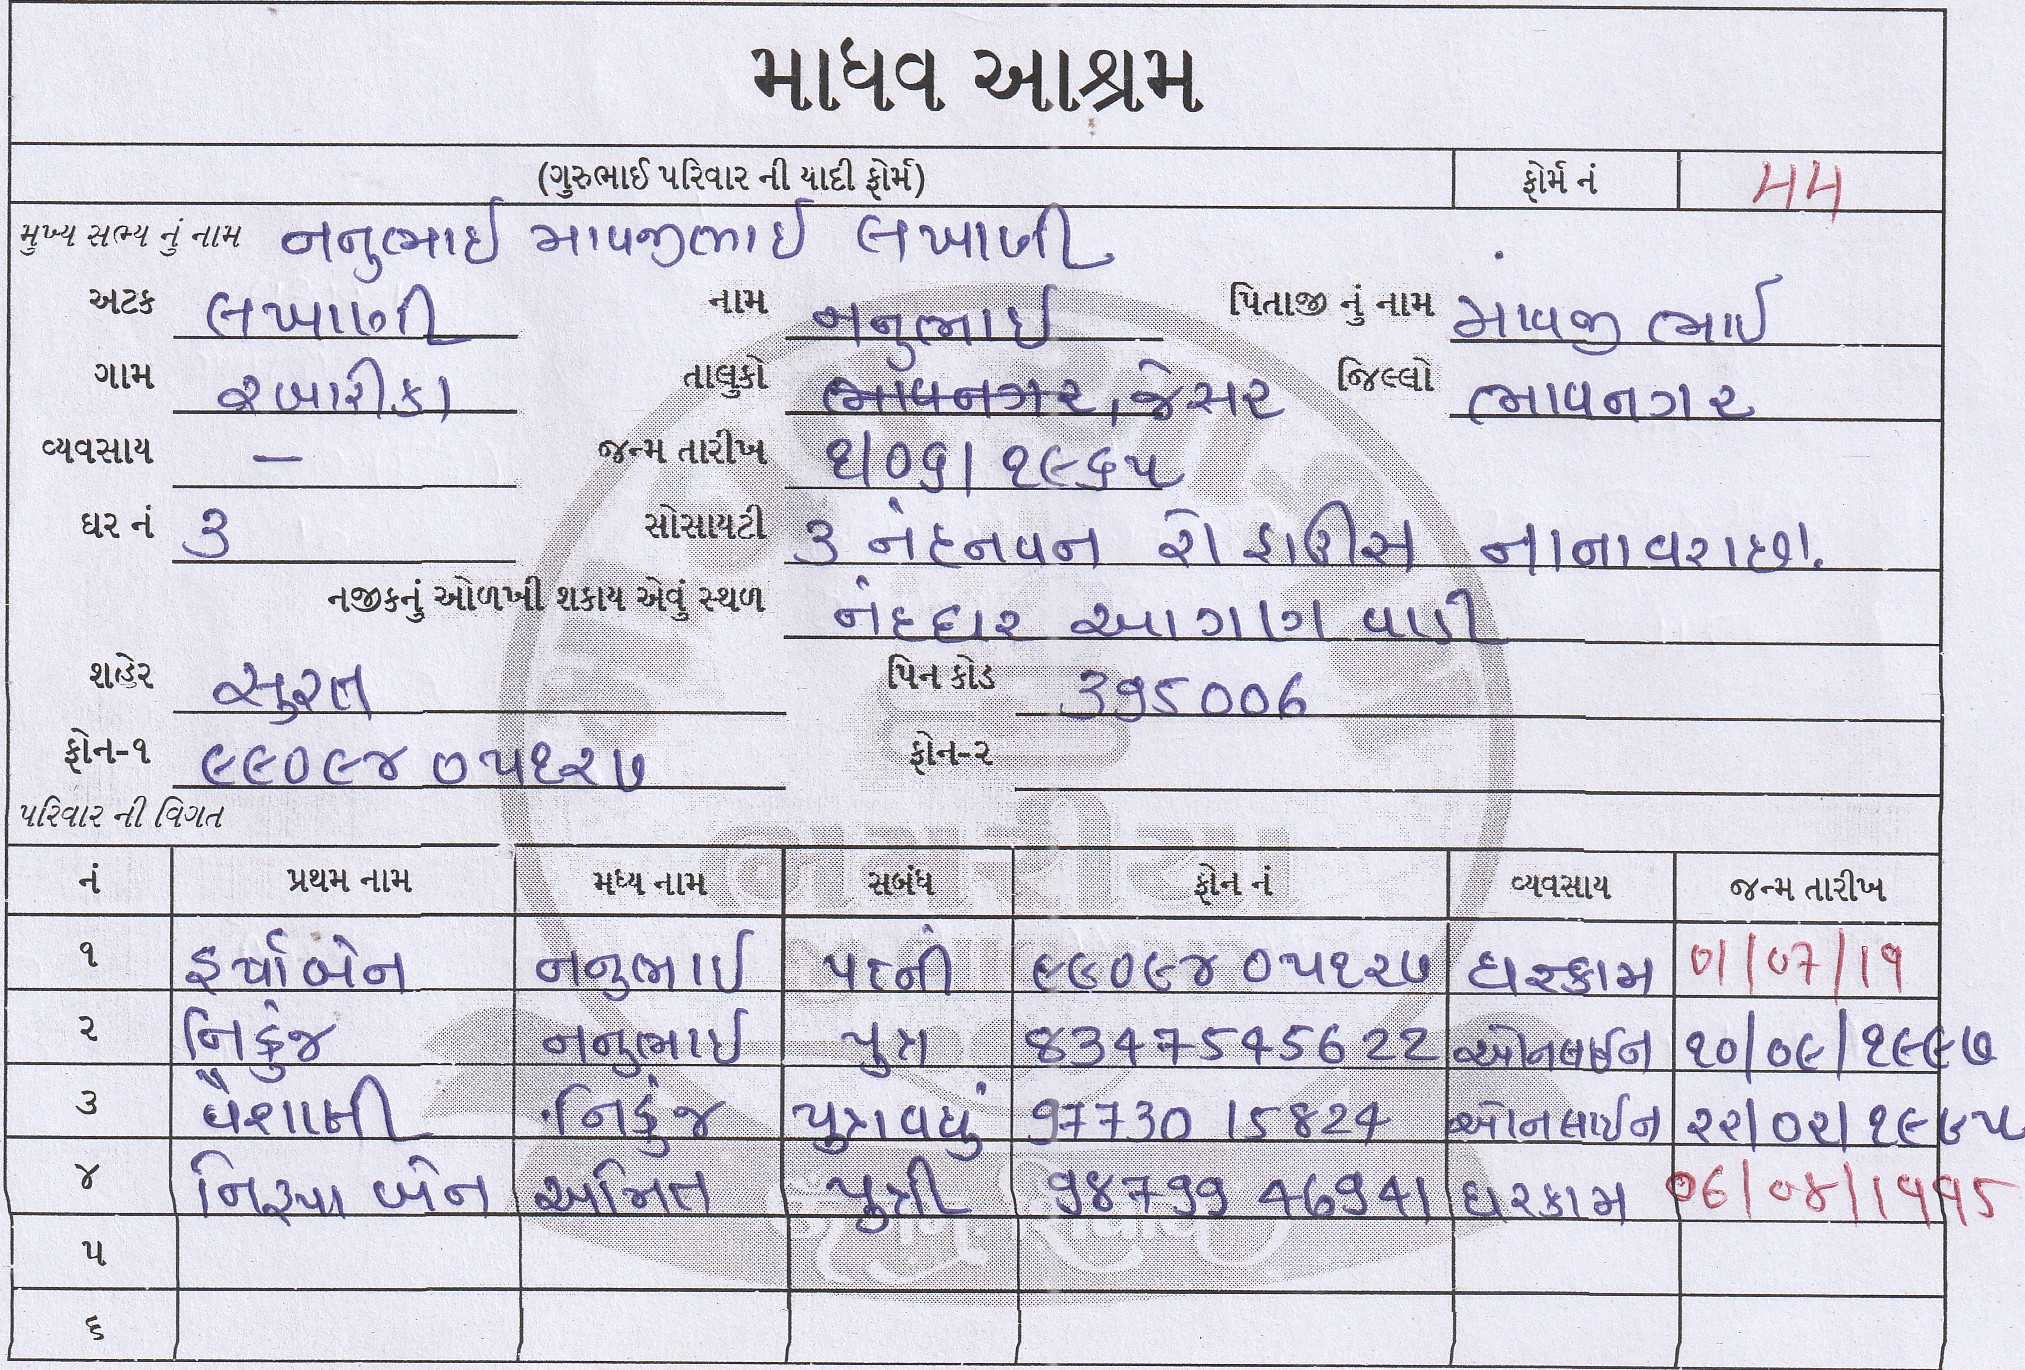 માધવ આશ્રમ
(ગુરુભાઈ પરિવાર ની યાદી ફોર્મ) ફોર્મ નં ૫૫
મુખ્ય સભ્ય નું નામ નનુભાઈ માવજીભાઈ લખાણી
અટક લખાણી નામ નનુભાઈ પિતાજી નું નામ માંવજીભાઈ
ગામ રબારીકા તાલુકો ભાવનગર, જેસર જિલ્લો ભાવનગર
વ્યવસાય — જન્મ તારીખ ૧/૦૬/૧૯૬૫
ઘર નં ૩ સોસાયટી ૩ નંદનવન રો હાઉસ નાનાવરાછા.
નજીકનું ઓળખી શકાય એવું સ્થળ વાડી
શહેર સુરત પિન કોડ 395006
ફોન-૧ ૯૯૦૯૪ ૦૫૧૨૭ ફોન-૨
પરિવાર ની વિગત
નં પ્રથમ નામ મધ્ય નામ સબંધ ફોન નં વ્યવસાય જન્મ તારીખ
૧ હર્ષાબેન નનુભાઈ પત્ની ૯૯૦૯૪ ૦૫૧૨૭ ઘરકામ
૨ નિકુંજ નનુભાઈ પુત્ર 83475 45622 ઓનલાઈન ૧૦/૦૯/૧૯૯૭
૩ વૈશાલી નિકુંજ પુત્રવધું 97730 15824 ઓનલાઈન ૨૨/૦૨/૧૯૯૫
૪ નિરૂપા બેન અમિત પુત્રી 98799 46941 ઘરકામ 06/08/1995
૫
૬